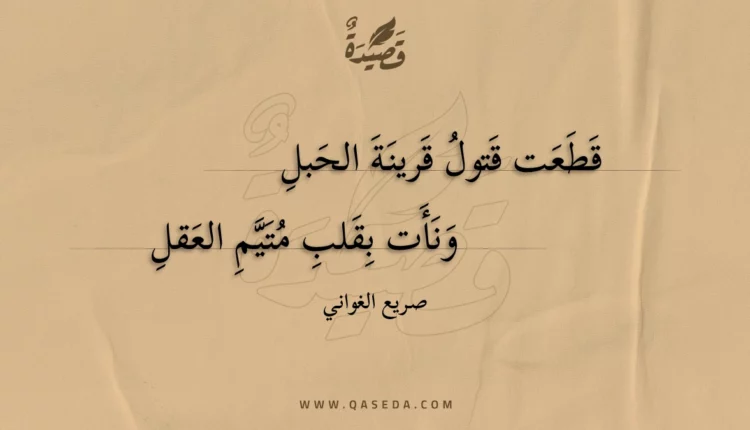 قَصِيْدَةٌ
قَطَعَت قَتولُ قَرينَةَ الحَبلِ
وَنَأَت بِقَلبِ مُتَيَّمِ العَقلِ
صريع الغواني
WWW.QASEDA.COM